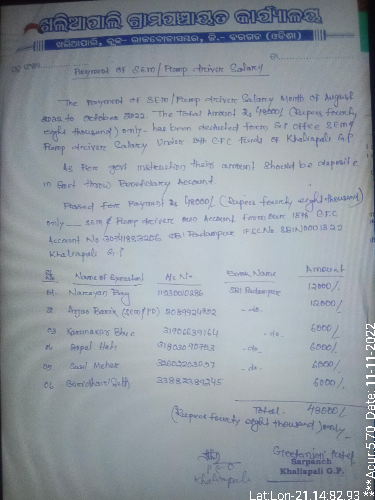 ଖଲିଆପାଲି ଗ୍ରାମପଞ୍ଚାୟତ କାର୍ଯ୍ୟାଳୟ
ଖଲିଆପାଲି, ବ୍ଲକ- ରାଜବୋଡାସମ୍ବର, ଜି.- ବରଗଡ (ଓଡିଶା)
Payment of SEM/Pump driver Salary
The Payment of SEM/Pump driver Salary Month of August
2022 to October 2022. The Total Amount Rs 48000/- (Rupees fourty
eight thousand) only- has been deducted from Office SEM &
Pump driver Salary Under 15th C.F.C funds of Khaliapali G.P
As Per govt instruction their amount should be deposite
in Beneficiary Account
Passed for Payment Rs 48000/- (Rupees fourty eight thousand)
only SEM & Pump driver own Account from our 15th C.F.C
Account No SBI Padampur IFSC No SBIN0001322
Khaliapali G.P
Sl No Name of A/c N- Bank Name Amount
01 Narayan Bag SBI Padampur 12000/-
02 Barik (SEM/PD) -do- 12000/-
03 Karunakar 31906639164 -do- 6000/-
04 Gopal -do- 6000/-
05 Sunil Meher -do- 6000/-
06 33882389245 6000/-
Total- 48000/-
(Rupees fourty eight thousand) only/-
P E O
Khaliapali
Sarpanch
Khaliapali G.P.
Lat:Lon-21.14:82.93 ***Acur:5.70 Date: 11-11-2022